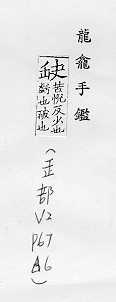 龍龕手鑑
苦悦反少也
虧也破也
(缶部 V2 P67 A6)